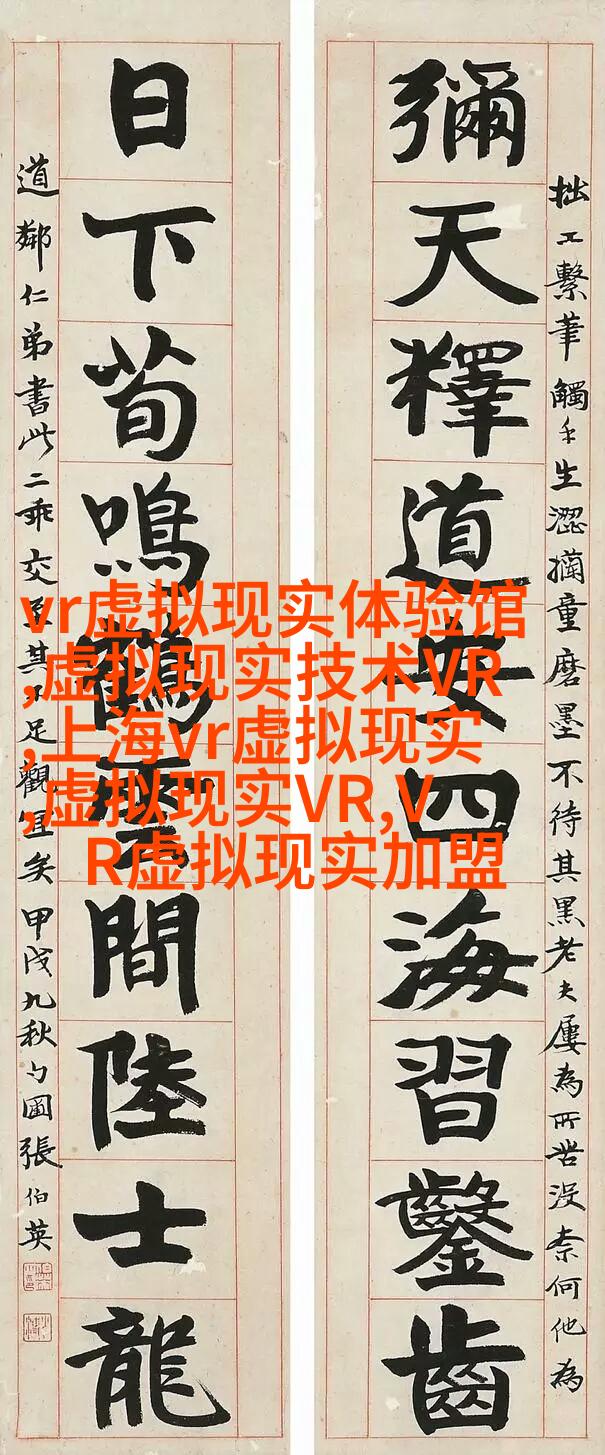 拙工繫筆觸手生澀童磨墨不待其黑老夫屢為所苦沒柰何他為
彌天釋道安四海習鑿齒
日下荀鳴鶴雲間陸士龍
道鄰仁弟書此二乖交至其不足觀宜矣甲戌九秋勺圃張伯英
vr虚拟现实体验馆
,虚拟现实技术VR
,上海vr虚拟现实
,虚拟现实VR,V
R虚拟现实加盟